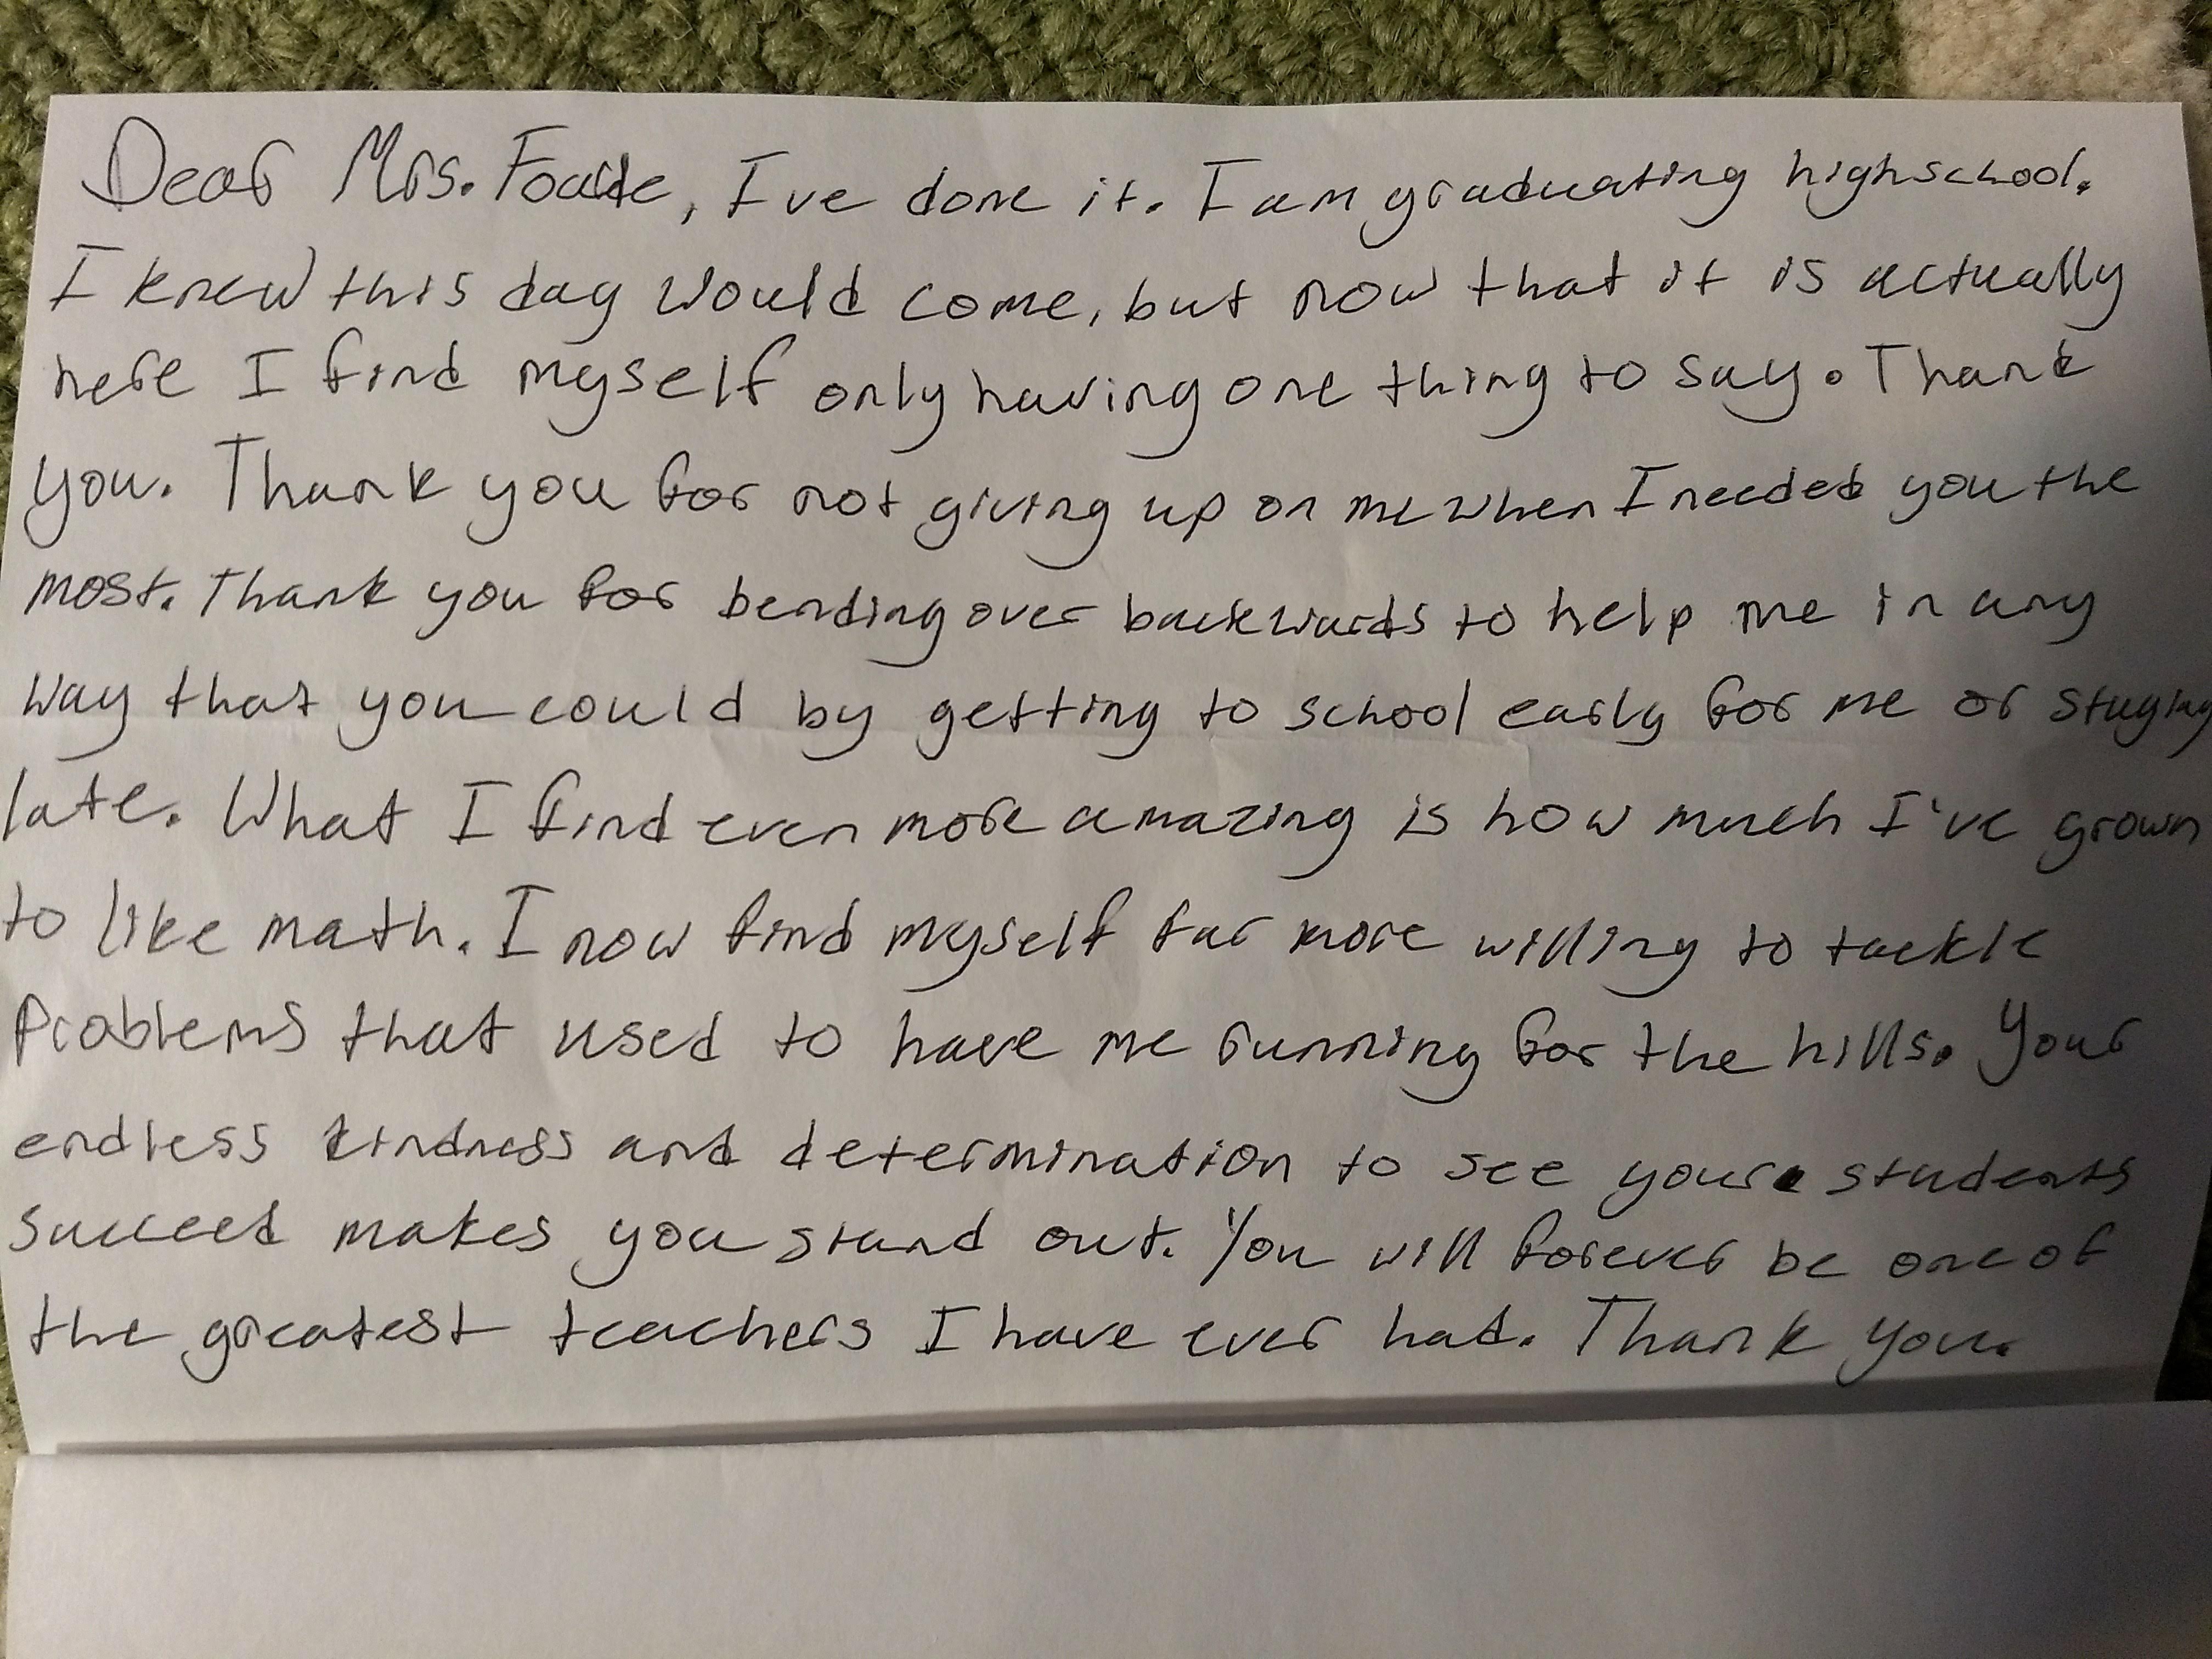 Dear Mrs. , I've done it. I am graduating highschool.
I knew this day would come, but now that it is actually
here I find myself only having one thing to say. Thank
you. Thank you for not giving up on me when I needed you the
most. Thank you for bending over backwards to help me in any
way that you could by getting to school early for me or staying
late. What I find even more amazing is how much I've grown
to like math. I now find myself far more willing to tackle
Problems that used to have me running for the hills. Your
endless kindness and determination to see your students
succeed makes you stand out. You will forever be one of
the greatest teachers I have ever had. Thank you.